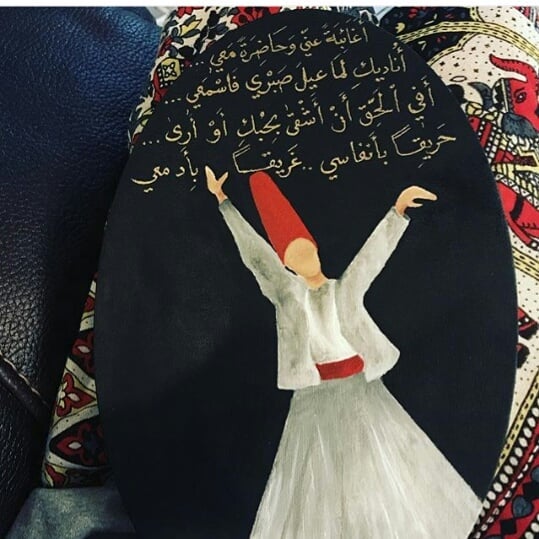 أغائبةً عني وحاضرةً معي ...
أناديكِ لما عيل صبري فاسمعي ...
أفي الحقّ أن أشقى بحبكِ أو أرى ...
حريقاً بأنفاسي .. غريقاً بأدمعي